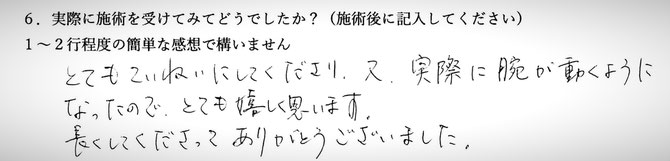 6．実際に施術を受けてみてどうでしたか？（施術後に記入してください）
1～2行程度の簡単な感想で構いません
とてもていねいにしてくださり、又、実際に腕が動くように
なったので、とても嬉しく思います。
良くしてくださって ありがとうございました。